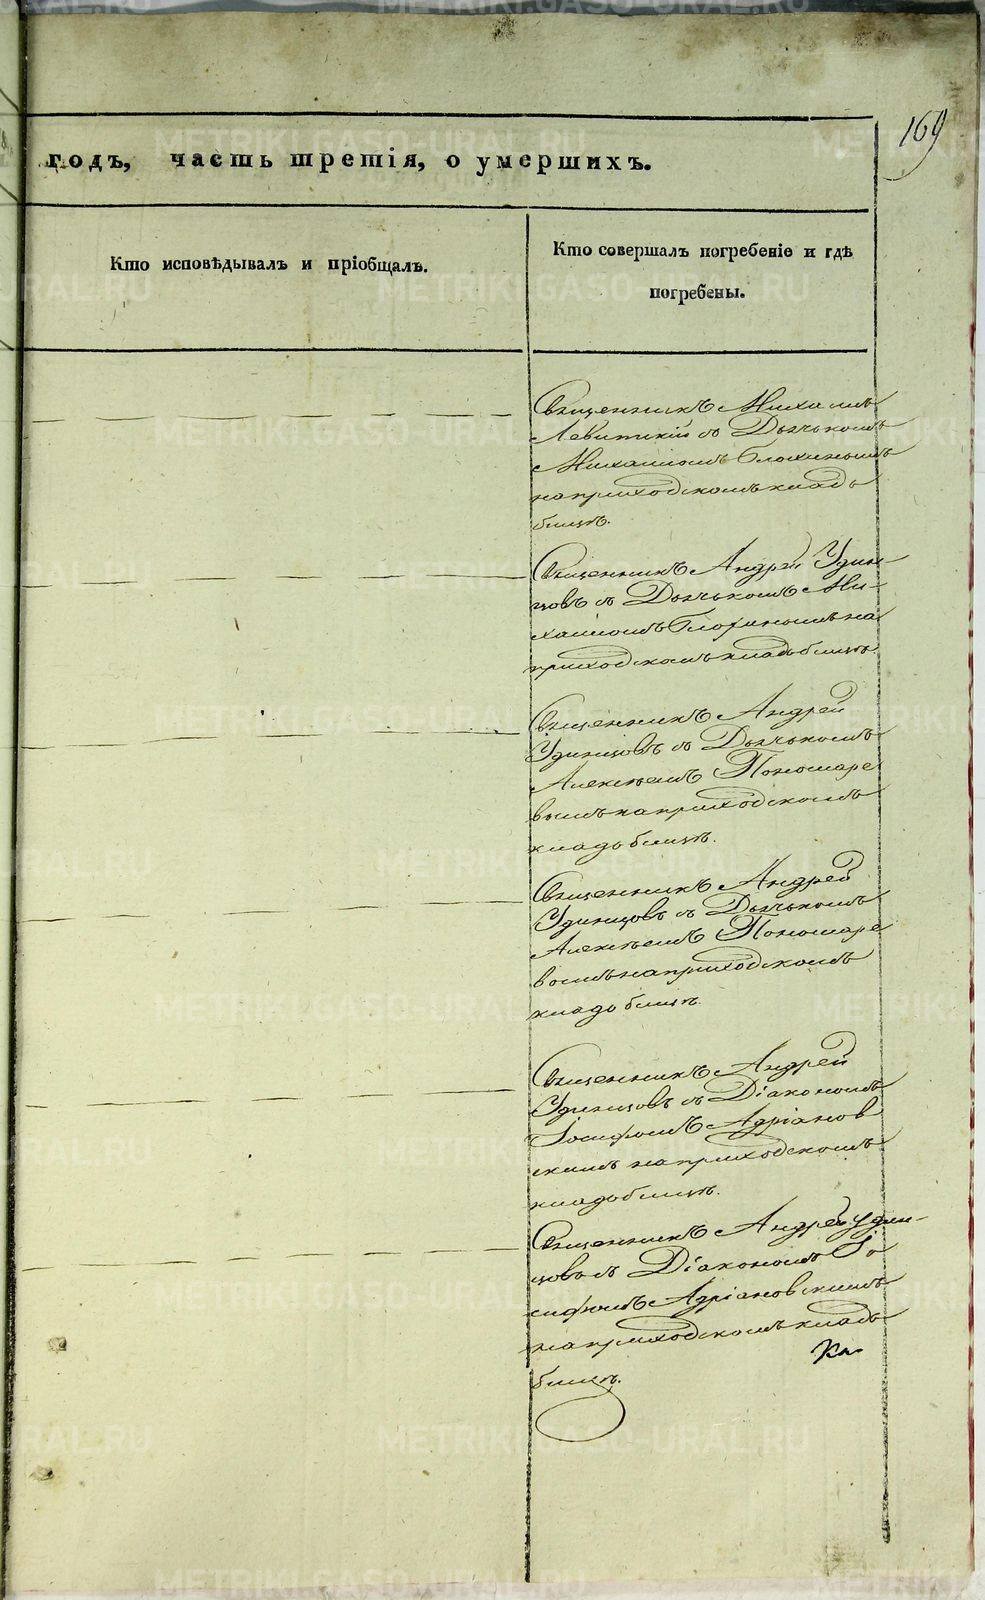 169
годъ, часть третія, о умершихъ.
Кто исповѣдывалъ и пріобщалъ.
Кто совершалъ погребеніе и гдѣ
погребены.
Священникъ Михаилъ
Левитскій съ Дьячькомъ
Михаиломъ Блохинымъ
на приходскомъ кладь
бищѣ.
Священникъ Андрей Удин-
цовъ съ Дьячькомъ Ми-
хаиломъ Блохинымъ на
приходскомъ кладьбищѣ.
Священникъ Андрей
Удинцовъ съ Дьячькомъ
Алексѣемъ Пономаре
вымъ на приходскомъ
кладьбищѣ.
Священникъ Андрей
Удинцовъ съ Дьячькомъ
Алексѣемъ Пономаре
вымъ на приходскомъ
кладьбищѣ.
Священникъ Андрей
Удинцовъ съ Діакономъ
Іосифомъ Адріанов
скимъ на приходскомъ
кладбищѣ.
Священникъ Андрей Удин-
цовъ съ Діакономъ Іо
сифомъ Адріановскимъ
на приходскомъ кладь
бищѣ.
METRIKI.GASO-URAL.RU